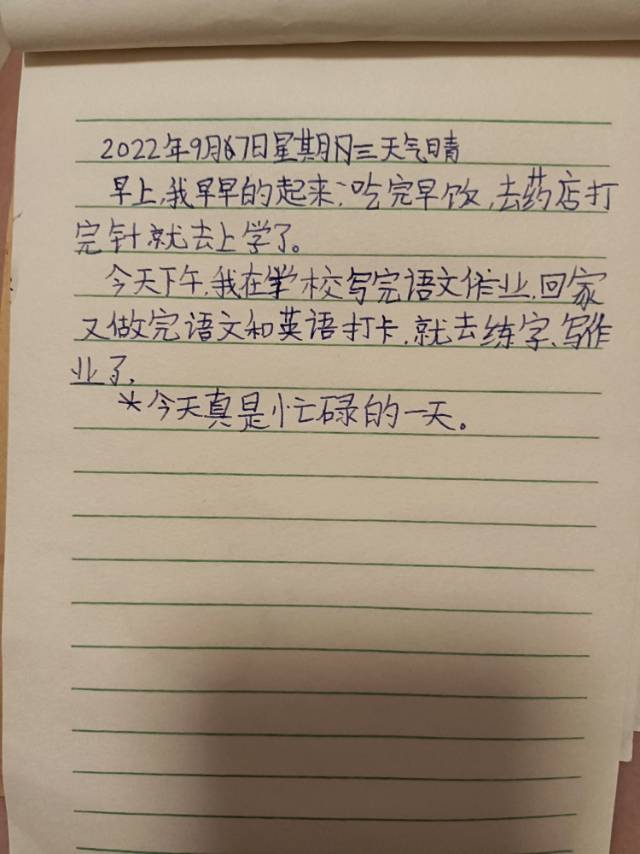 2022年9月7日星期三天气晴
早上,我早早的起来,吃完早饭,去药店打
完针就去上学了。
今天下午,我在学校写完语文作业,回家
又做完语文和英语打卡,就去练字、写作
业了,
*今天真是忙碌的一天。